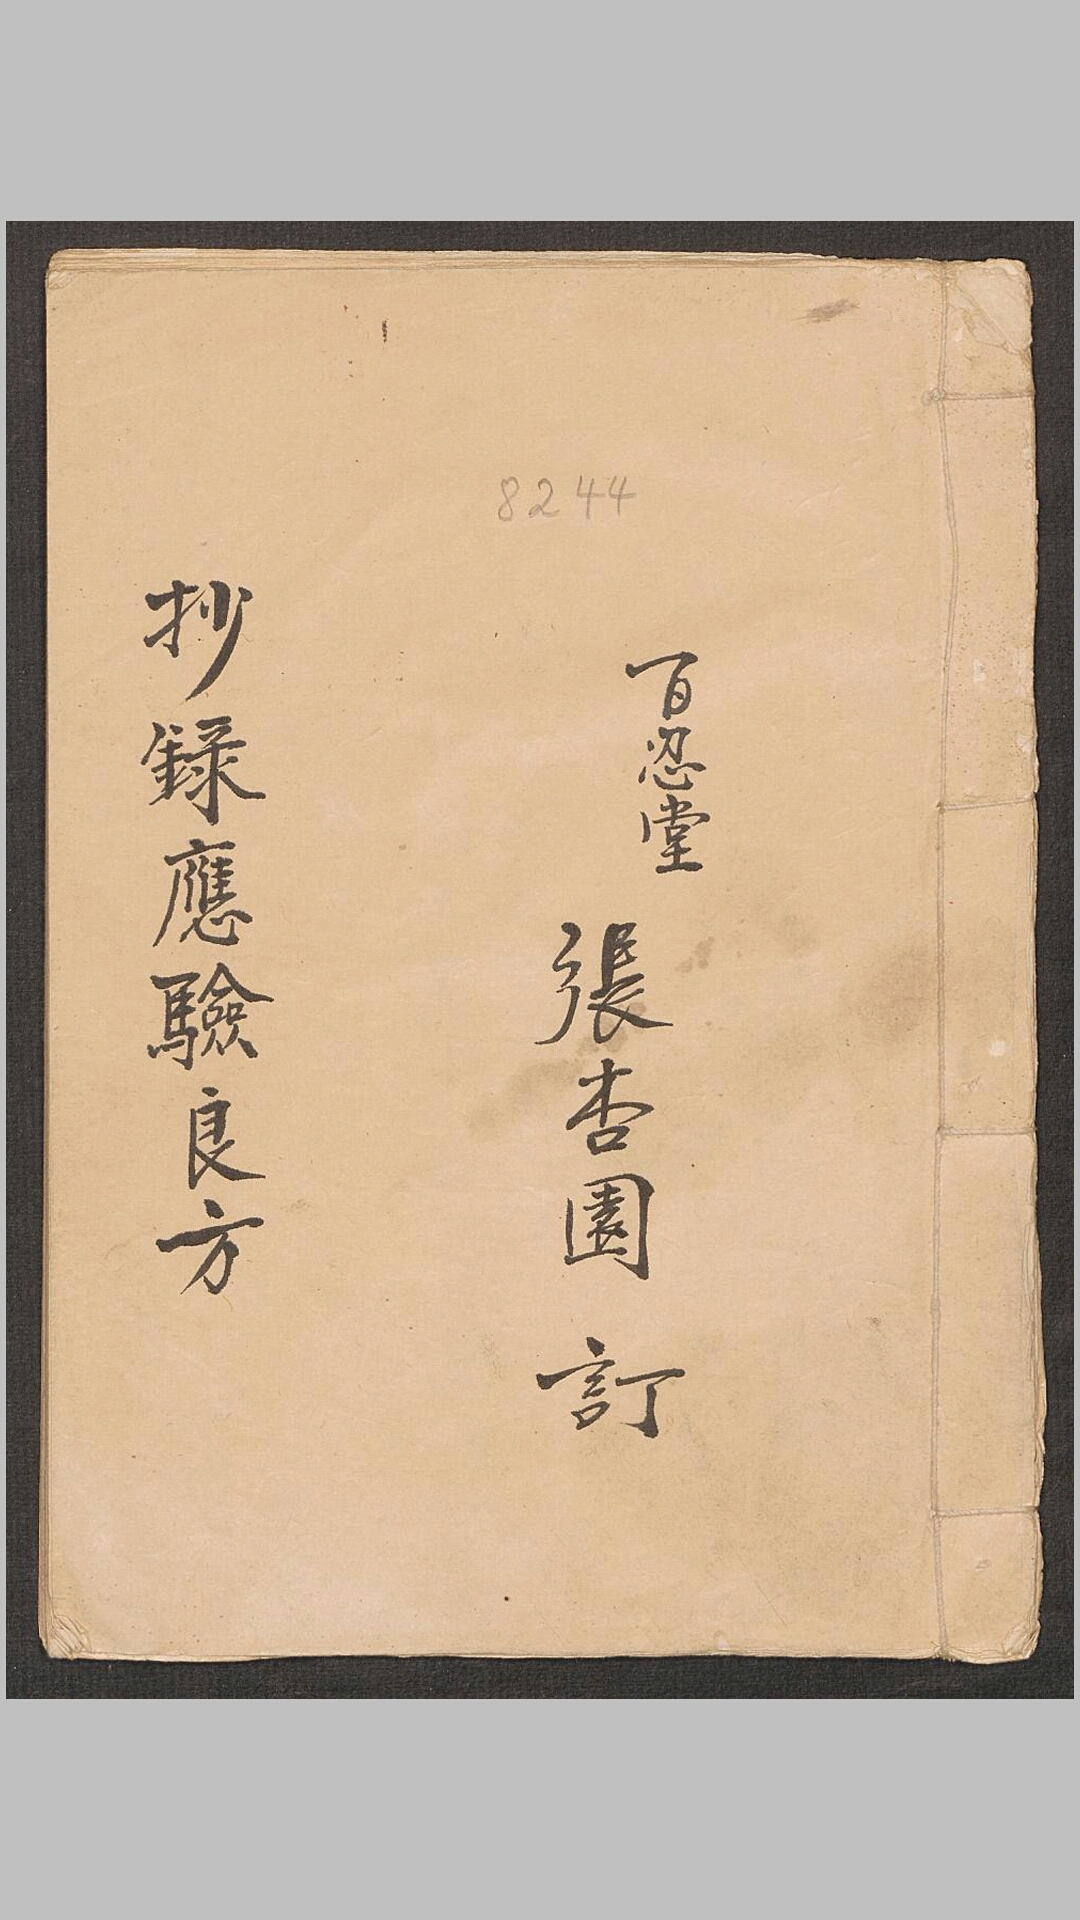 8244
百忍堂
張杏園 訂
抄録應驗良方